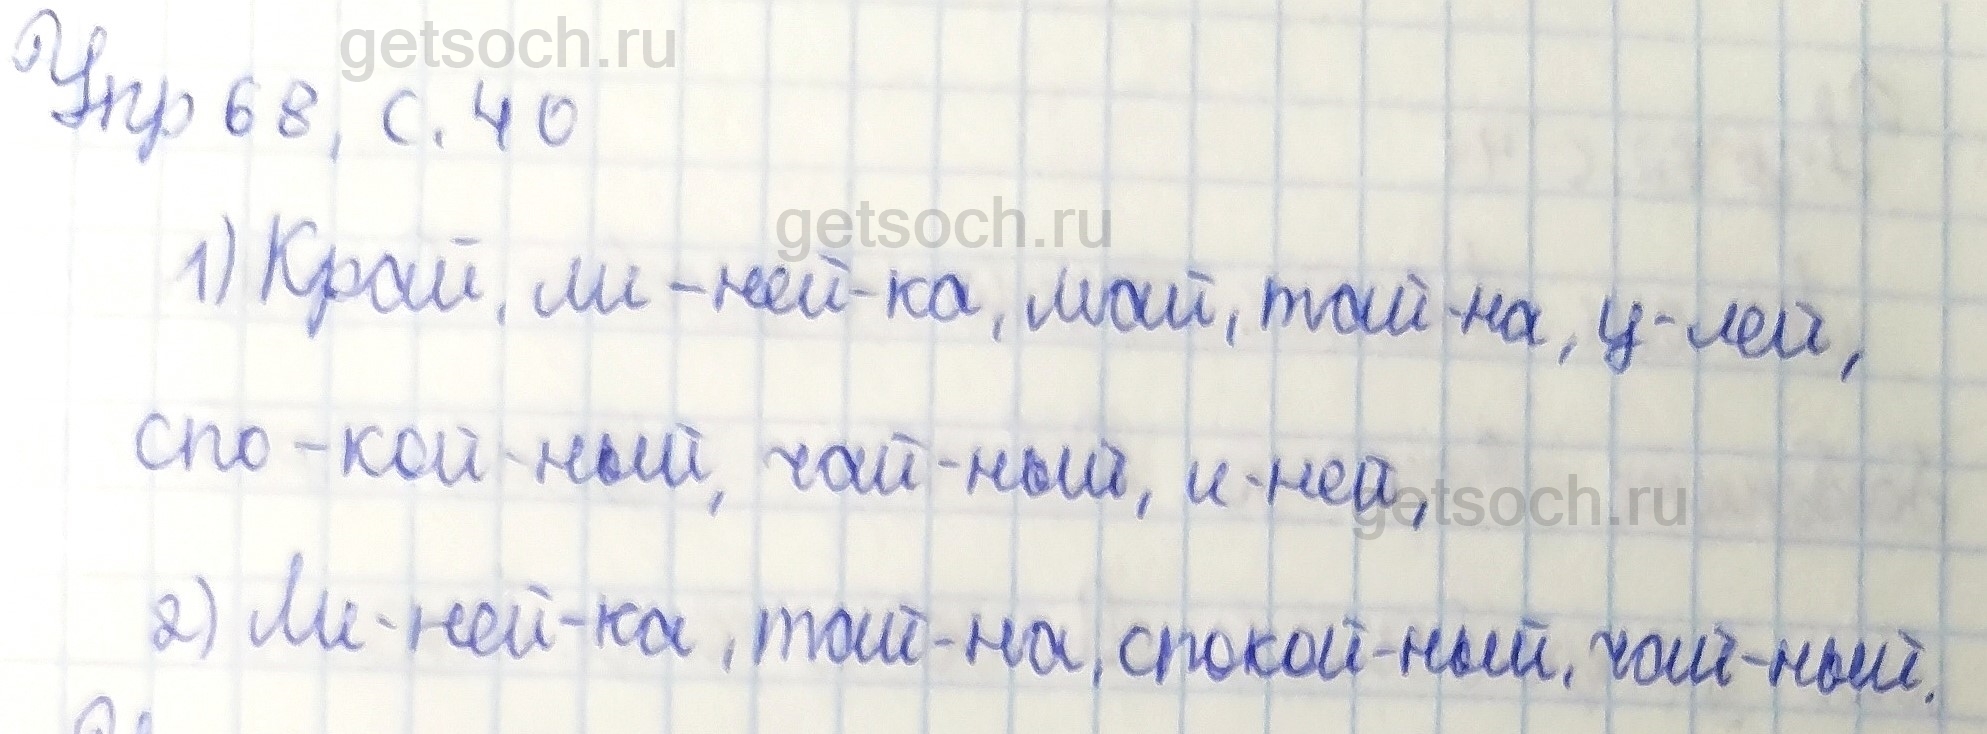 getsoch.ru
Упр 68, с. 40
getsoch.ru
1) Край, ли-ней-ка, май, тай-на, у-лей,
спо-кой-ный, чай-ный, и-ней,
getsoch.ru
2) Ли-ней-ка, тай-на, спокой-ный, чай-ный.